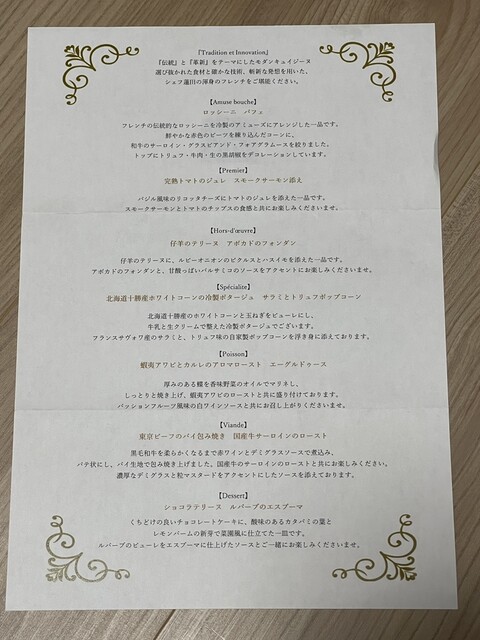 『Tradition et Innovation』
『伝統』と『革新』をテーマにしたモダンキュイジーヌ
選び抜かれた食材と確かな技術、斬新な発想を用いた、
シェフ蓮田の渾身のフレンチをご堪能ください。
【Amuse bouche】
ロッシーニ パフェ
フレンチの伝統的なロッシーニを冷製のアミューズにアレンジした一品です。
鮮やかな赤色のビーツを練り込んだコーンに、
和牛のサーロイン・グラスビアンド・フォアグラムースを絞りました。
トップにトリュフ・牛肉・生の黒胡椒をデコレーションしています。
【Premier】
完熟トマトのジュレ スモークサーモン添え
バジル風味のリコッタチーズにトマトのジュレを添えた一品です。
スモークサーモンとトマトのチップスの食感と共にお楽しみくださいませ。
【Hors-d'œuvre】
仔羊のテリーヌ アボカドのフォンダン
仔羊のテリーヌに、ルビーオニオンのピクルスとハスイモを添えた一品です。
アボカドのフォンダンと、甘酸っぱいバルサミコのソースをアクセントにお楽しみくださいませ。
【Spécialize】
北海道十勝産ホワイトコーンの冷製ポタージュ サラミとトリュフポップコーン
北海道十勝産のホワイトコーンと玉ねぎをピューレにし、
牛乳と生クリームで整えた冷製ポタージュでございます。
フランスサヴォワ産のサラミと、トリュフ味の自家製ポップコーンを浮き身に添えております。
【Poisson】
蝦夷アワビとカルレのアロマロースト エーグルドゥース
厚みのある鰈を香味野菜のオイルでマリネし、
しっとりと焼き上げ、蝦夷アワビのローストと共に盛り付けております。
パッションフルーツ風味の白ワインソースと共にお召し上がりくださいませ。
【Viande】
東京ビーフのパイ包み焼き 国産牛サーロインのロースト
黒毛和牛を柔らかくなるまで赤ワインとデミグラスソースで煮込み、
パテ状にし、パイ生地で包み焼き上げました。国産牛のサーロインのローストと共にお楽しみください。
濃厚なデミグラスと粒マスタードをアクセントにしたソースを添えております。
【Dessert】
ショコラテリーヌ ルバーブのエスプーマ
くちどけの良いチョコレートケーキに、酸味のあるカタバミの葉と
レモンバームの新芽で菜園風に仕立てた一皿です。
ルバーブのピューレをエスプーマに仕上げたソースとご一緒にお楽しみくださいませ。